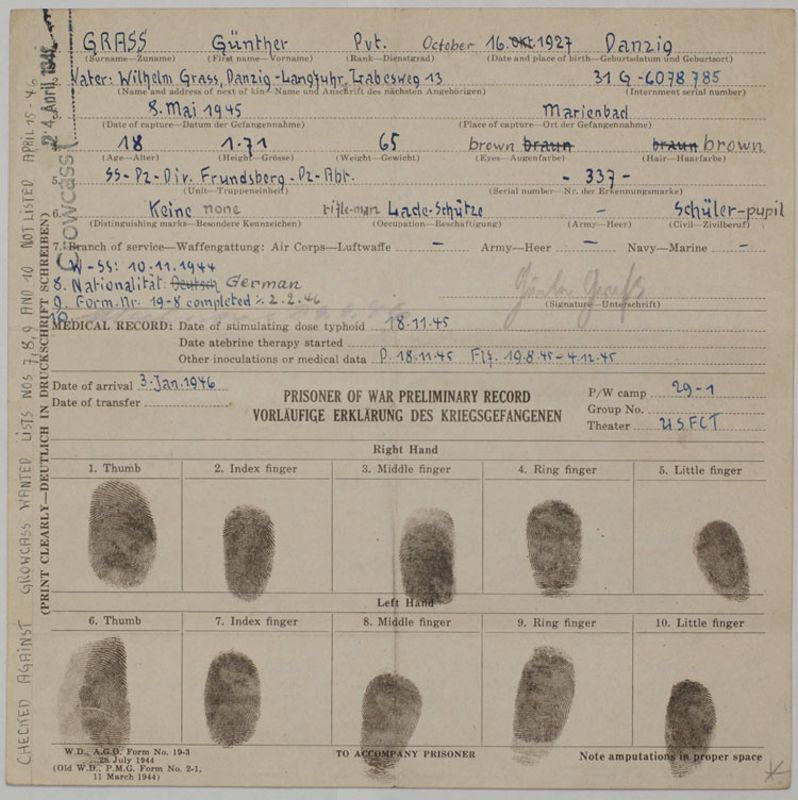 GRASS Günther Pvt. October 16. Okt. 1927 Danzig
(Surname—Zuname) (First name—Vorname) (Rank—Dienstgrad) (Date and place of birth—Geburtsdatum und Geburtsort)
Vater: Wilhelm Grass, Danzig-Langfuhr, Labesweg 13 31 G-6078785
(Name and address of next of kin—Name und Anschrift des nächsten Angehörigen) (Internment serial number)
8. Mai 1945 Marienbad
(Date of capture—Datum der Gefangennahme) (Place of capture—Ort der Gefangennahme)
18 1.71 65 brown braun braun brown
(Age—Alter) (Height—Grösse) (Weight—Gewicht) (Eyes—Augenfarbe) (Hair—Haarfarbe)
5. SS-Pz-Div. Frundsberg-Pz-Abt. - 337 -
(Unit—Truppeneinheit) (Serial number—Nr. der Erkennungsmarke)
6. Keine none rifle-man Lade-Schütze — Schüler-pupil
(Distinguishing marks—Besondere Kennzeichen) (Occupation—Beschäftigung) (Army—Heer) (Civil—Zivilberuf)
7. Branch of service—Waffengattung: Air Corps—Luftwaffe — Army—Heer — Navy—Marine —
W-SS: 10.11.1944
8. Nationalität: Deutsch German
9. Form. Nr. 19-8 completed 2.2.46
(Signature—Unterschrift)
10.
MEDICAL RECORD: Date of stimulating dose typhoid 18.11.45
Date atebrine therapy started
Other inoculations or medical data P. 18.11.45 Flf. 19.8.45-4.12.45
Date of arrival 3. Jan. 1946
Date of transfer
PRISONER OF WAR PRELIMINARY RECORD
VORLÄUFIGE ERKLÄRUNG DES KRIEGSGEFANGENEN
P/W camp 29-1
Group No.
Theater USFCT
Right Hand
1. Thumb 2. Index finger 3. Middle finger 4. Ring finger 5. Little finger
Left Hand
6. Thumb 7. Index finger 8. Middle finger 9. Ring finger 10. Little finger
W.D., A.G.O. Form No. 19-3
28 July 1944
(Old W.D., P.M.G. Form No. 2-1,
11 March 1944)
TO ACCOMPANY PRISONER
Note amputations in proper space
CHECKED AGAINST GROWCASS WANTED LISTS NOS 7,8,9 AND 10 NOT LISTED APRIL 15-46
(PRINT CLEARLY—DEUTLICH IN DRUCKSCHRIFT SCHREIBEN)
Crowcass
24. April 1946